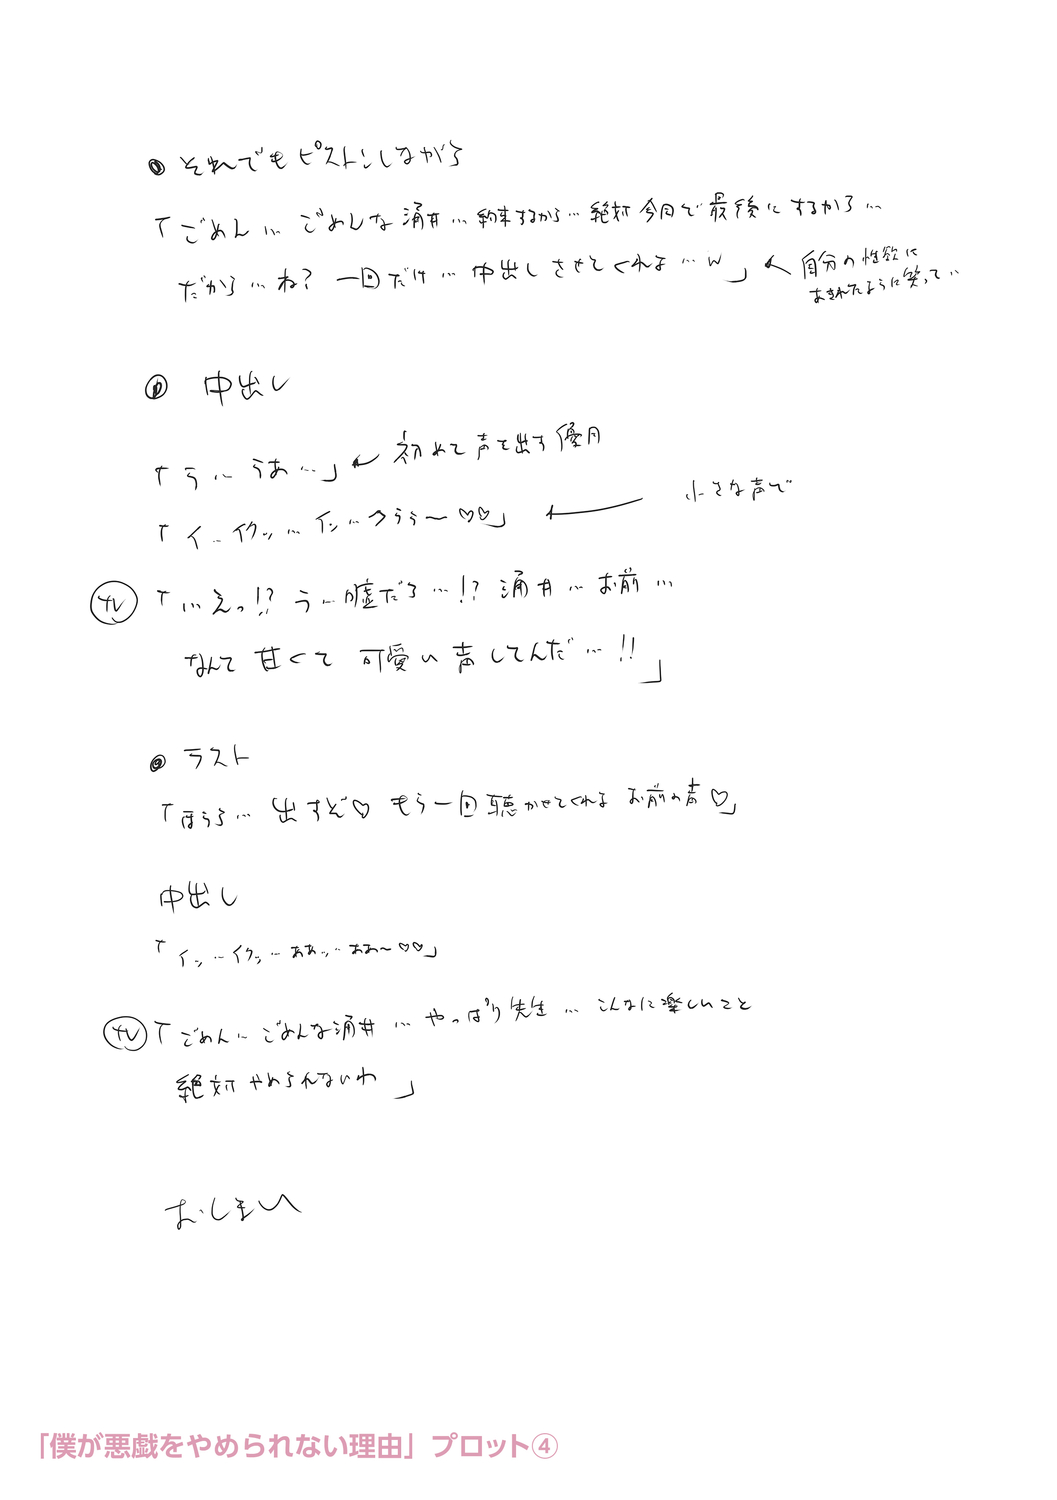 それでもピストンしながら
「ごめん… ごめんな涌井… 約束するから… 絶対今日で最後にするから…
だから…ね? 一回だけ… 中出しさせてくれよ…w」 ← 自分の性欲に
あきれたように笑って…
中出し
「う… うあ…」 ← 初めて声を出す優月
「イ… イクッ… イッ…クぅぅ〜♡♡」 ← 小さな声で
「…えっ!? う…嘘だろ…!? 涌井… お前…
なんて甘くて可愛い声してんだ…!!」
ラスト
「ほうら… 出すぞ♡ もう一回聴かせてくれよ お前の声♡」
中出し
「イッ… イクッ… ああッ… ああ〜♡♡」
「ごめん… ごめんな涌井… やっぱり先生… こんなに楽しいこと
絶対やめられないわ」
おしまい
「僕が悪戯をやめられない理由」プロット④